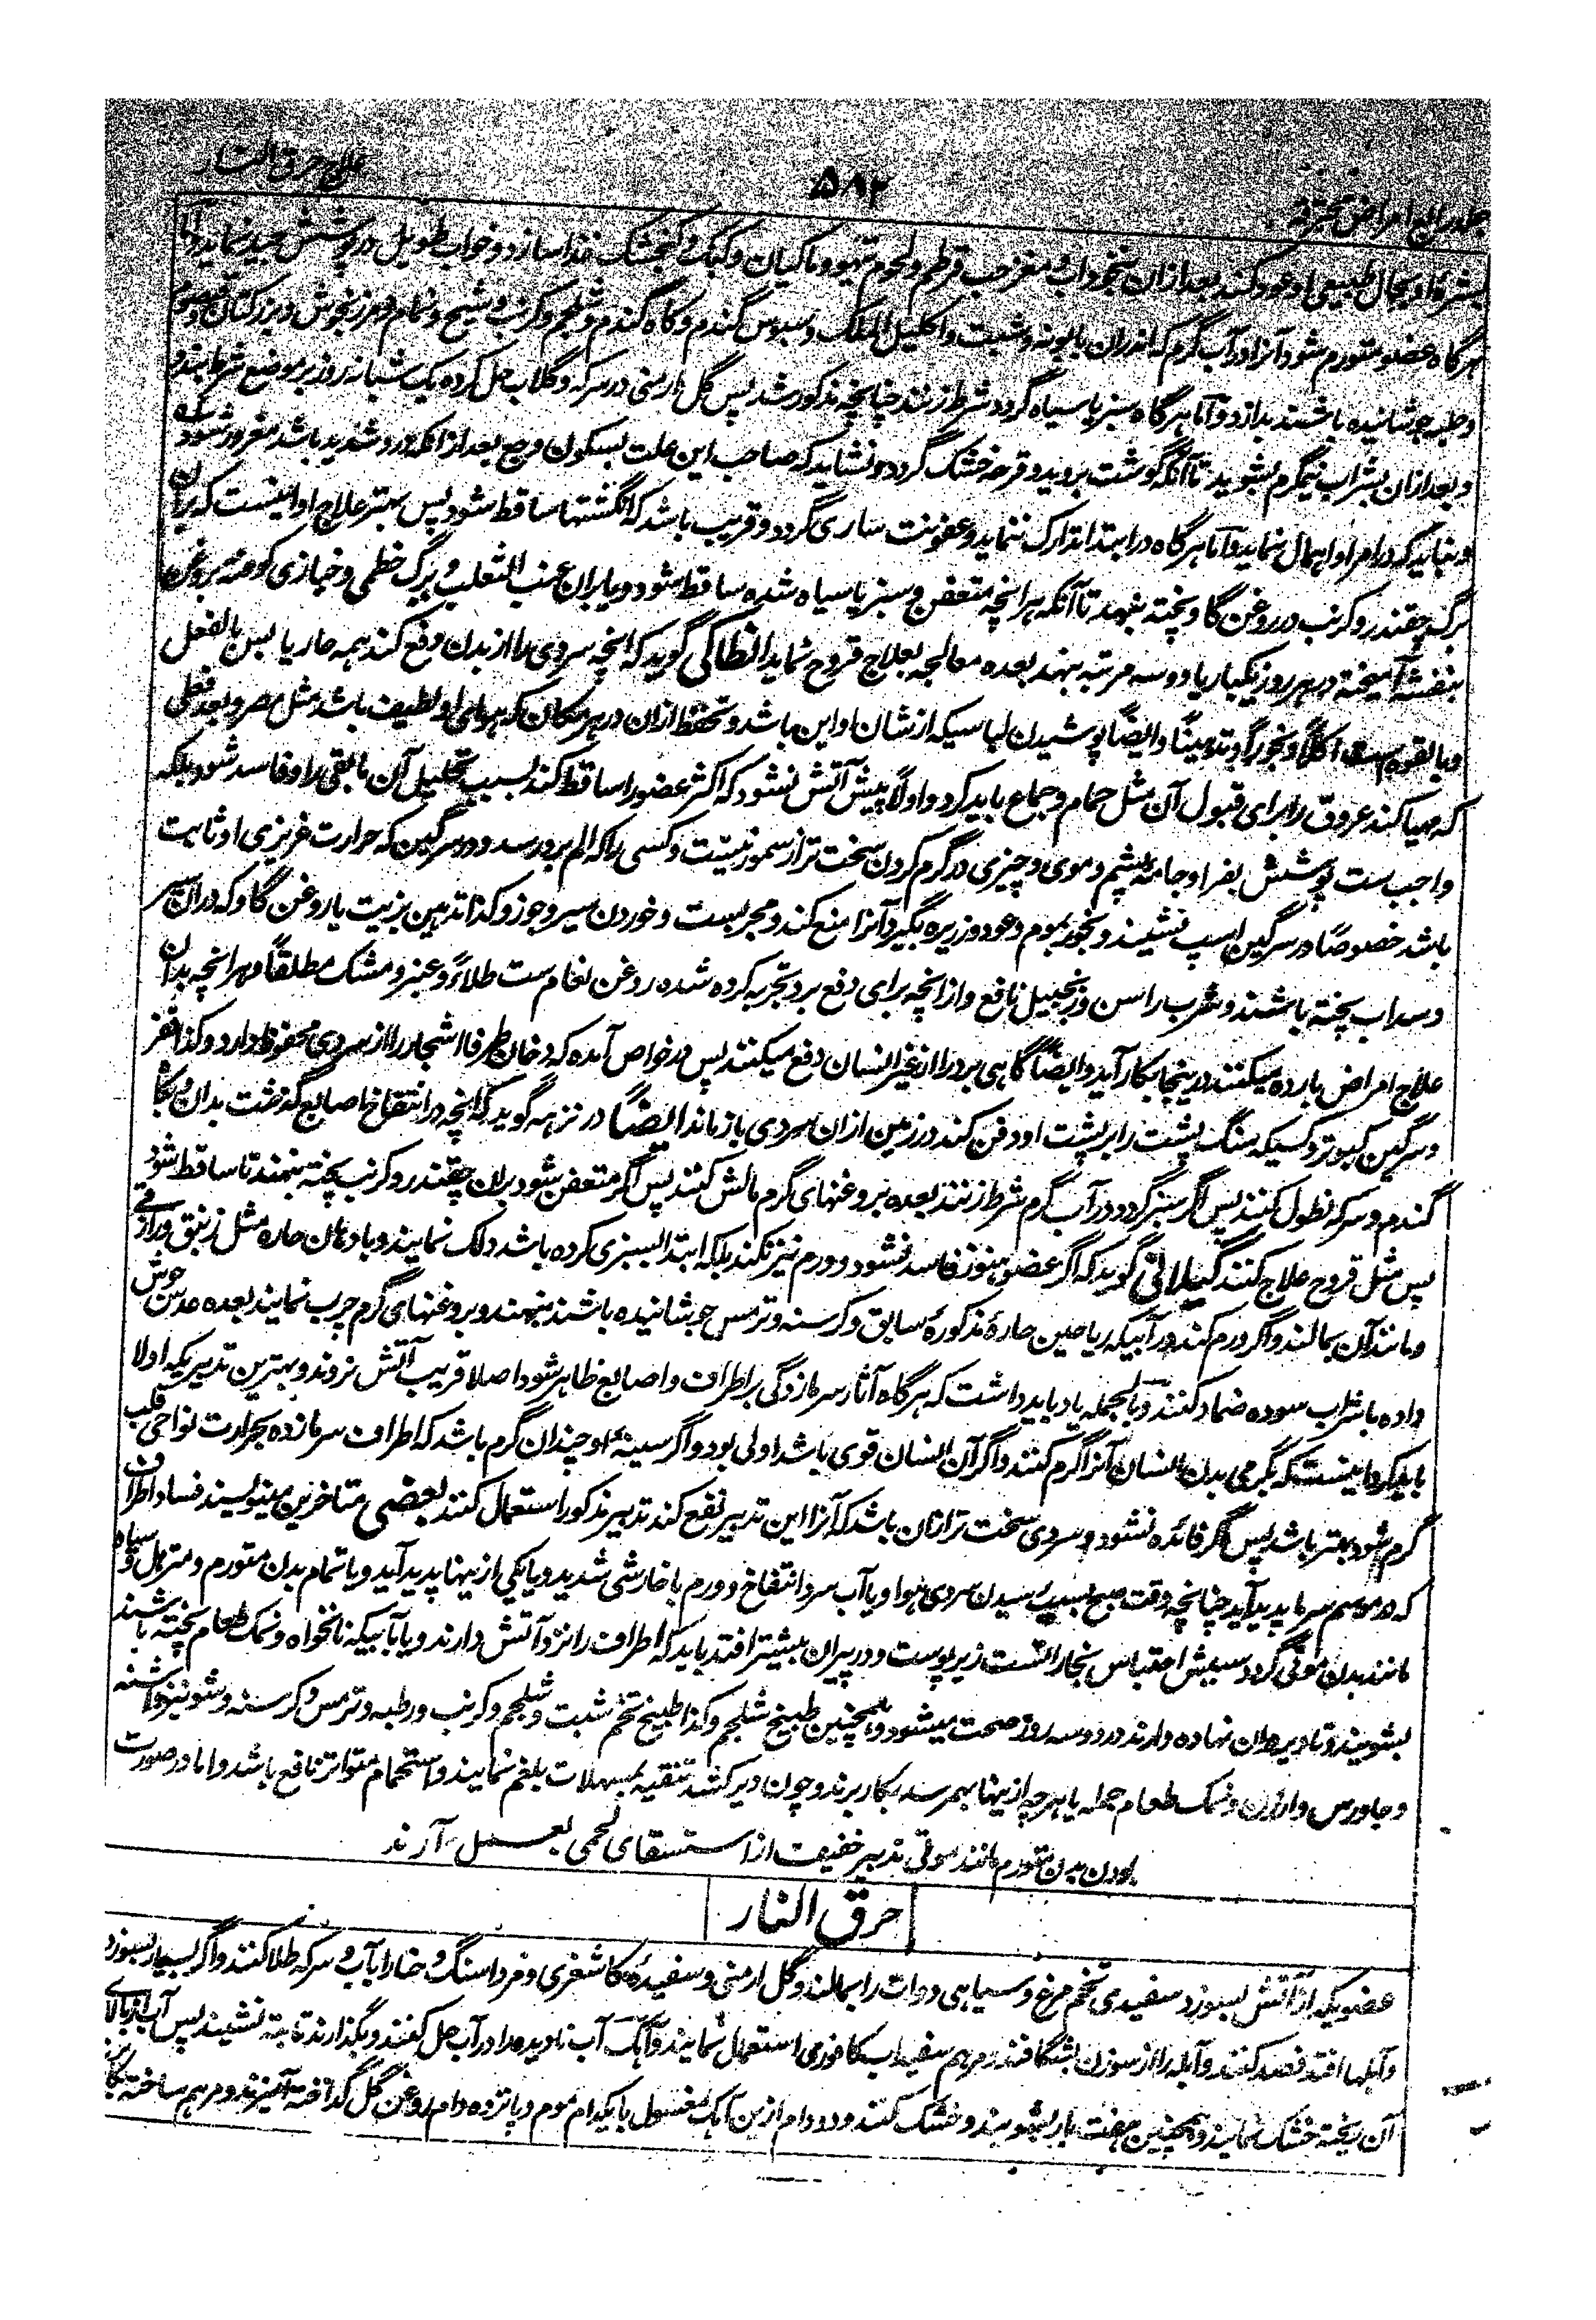 علاج حرق النار
۵۸۲
جلد رابع امراض متفرقه
بشرۀ او بحال طبیعی او عود کند بعد ازان بنخوداب و مغز حب قرطم و لحوم تیهو و ماکیان و کبک و کنجشک غذا سازد و خواب طویل در پوشش جید نماید و اما
هرگاه عضو متورم شود آنرا در آب گرم که اندران بابونه و شبت و اکلیل الملک و سبوس گندم و کاه گندم و شلجم و کرنب و شیح و نمام و مرزنجوش و بزر کتان و قیصوم
و حلبه جوشانیده باشند بدارد و اما هرگاه سبز یا سیاه گردد شرط زنند چنانچه مذکور شد پس گل ارمنی در سرکه و گلاب حل کرده یک شبانه روز بر موضع شرط بنهند
و بعد ازان بشراب نیمگرم بشویند تا آنکه گوشت بروید و قرحه خشک گردد و نشاید که صاحب این علت بسکون وجع بعد از انکه درد شدید باشد مغرور شود
و نباید که در امر او اهمال نماید و اما هرگاه در ابتدا تدارک ننماید و عفونت ساری گردد و قریب باشد که انگشتها ساقط شود پس بهتر علاج او اینست که بران
برگ چقندر و کرنب در روغن گاو پخته بنهند تا آنکه هر آنچه متعفن و سبز یا سیاه شده ساقط شود و یا بران عنب الثعلب و برگ خطمی و خبازی کوفته بروغن
بنفشه آمیخته در هر روز یکبار یا دو سه مرتبه بنهند بعده معالجه بعلاج قروح نماید انطاکی گوید که آنچه سردی را از بدن دفع کند همه حار یابس بالفعل
و بالقوه ست اکلاً و بخوراً و تدهیناً و ایضاً پوشیدن لباسیکه از شان او این باشد و تحفظ ازان در هر مکان که هوای او لطیف باشد مثل مصر و بعد فعلی
که مهیا کند عروق را برای قبول آن مثل حمام و جماع باید کرد و اولاً پیش آتش نشود که اکثر عضو را ساقط کند بسبب تحلیل آن مابقی را و فاسد شود بلکه
واجب ست پوشش بفرا و جامه پشم و موی و چیزی در گرم کردن سخت تر از سمور نیست و کسی را که الم برد رسد و در سرگین که حرارت غریزی او ثابت
باشد خصوصاً در سرگین اسپ نشیند و بخور بموم و عود و زیره بگیرد آنرا منع کند و مجربست و خوردن سیر و جوز و کذا تدهین بزیت یا روغن گاو که دران سیر
و سداب پخته باشند و شرب راسن و زنجبیل نافع و از آنچه برای دفع برد تجربه کرده شده روغن نعام ست طلاءً و عنبر و مشک مطلقاً و هر آنچه بدان
علاج امراض بارده میکنند درینجا بکار آید و ایضاً گاهی برد را از غیر انسان دفع میکنند پس در خواص آمده که دخان طرفا اشجار را از سردی محفوظ دارد و کذا نفز
و سرگین کبوتر و کسیکه سنگ پشت را بر پشت او دفن کند در زمین ازان سردی باز ماند ایضاً در نزهه گوید که آنچه در انتفاخ اصابع گذشت بدان و بکاه
گندم و سرکه نطول کنند پس اگر سبز گردد در آب گرم شرط زنند بعده بروغنهای گرم مالش کنند پس اگر متعفن شود بران چقندر و کرنب پخته بنهند تا ساقط شود
پس مثل قروح علاج کنند گیلانی گوید که اگر عضو هنوز فاسد نشود و ورم نیز نکند بلکه ابتدا بسبزی کرده باشد دلک نمایند و بادهان حاره مثل زنبق و رازقی
و مانند آن بمالند و اگر ورم کند در آبیکه ریاحین حارۀ مذکورۀ سابق و کرسنه و ترمس جوشانیده باشند بنهند و بروغنهای گرم چرب نمایند بعده عدس جوش
داده با شراب سوده ضماد کنند و بالجمله یاد باید داشت که هرگاه آثار سرمازدگی بر اطراف و اصابع ظاهر شود اصلا قریب آتش نروند و بهترین تدبیریکه اولا
باید کرد اینست که بگرمی بدن انسان آنرا گرم کنند و اگر آن انسان قوی باشد اولی بود و اگر سینۀ او چندان گرم باشد که اطراف سرمازده بحرارت نواحی قلب
گرم شود بهتر باشد پس اگر فائده نشود و سردی سخت تر ازان باشد که آنرا این تدبیر نفع کند تدبیر مذکور استعمال کنند بعضی متاخرین مینویسند فساد اطراف
که در موسم سرما پدید آید چنانچه وقت صبح بسبب رسیدن سردی هوا و یا آب سرد انتفاخ و ورم با خارش شدید و یا یکی ازینها پدید آید و یا تمام بدن متورم و مترهل و سیاه
مانند بدن موتی گردد سببش احتباس بخارا تست زیر پوست و در پیران بیشتر افتد باید که اطراف را نزد آتش دارند و یا بآبیکه نانخواه و نمک طعام پخته باشند
بشویند و تا دیر دران نهاده دارند در دو سه روز صحت میشود و همچنین طبیخ شلجم و کذا طبیخ تخم شبت و شلجم و کرنب و رطبه و ترمس و کرسنه و شونیز و اشنه
و جاورس و ارزن و نمک طعام جمله یا هر چه ازینها بهم رسد بکار برند و چون دیر کشد تنقیه بمسهلات بلغم نمایند و استحمام متواتر نافع باشد و اما در صورت
بودن بدن متورم مانند موتی تدبیر خفیف از استسقای لحمی بعمل آرند
حرق النار
عضویکه از آتش بسوزد سفیدی تخم مرغ و سیاهی دوات را بمالند و گل ارمنی و سفیدۀ کاشغری و مرداسنگ و حنا را بآب و سرکه طلا کنند و اگر بسیار بسوزد
و آبلها افتد فصد کنند و آبله را از سوزن بشگافند و مرهم سفیداب کافوری استعمال نمایند و آهک آب نادیده را در آب حل کنند و بگذارند تا بته نشیند پس آب از بالای
آن ریخته خشک نمایند و همچنین هفت بار بشویند و خشک کنند و دو دام ازین آهک مغسول با یکدام موم و پانزده دام روغن گل گداخته آمیزند و مرهم ساخته بکار برند